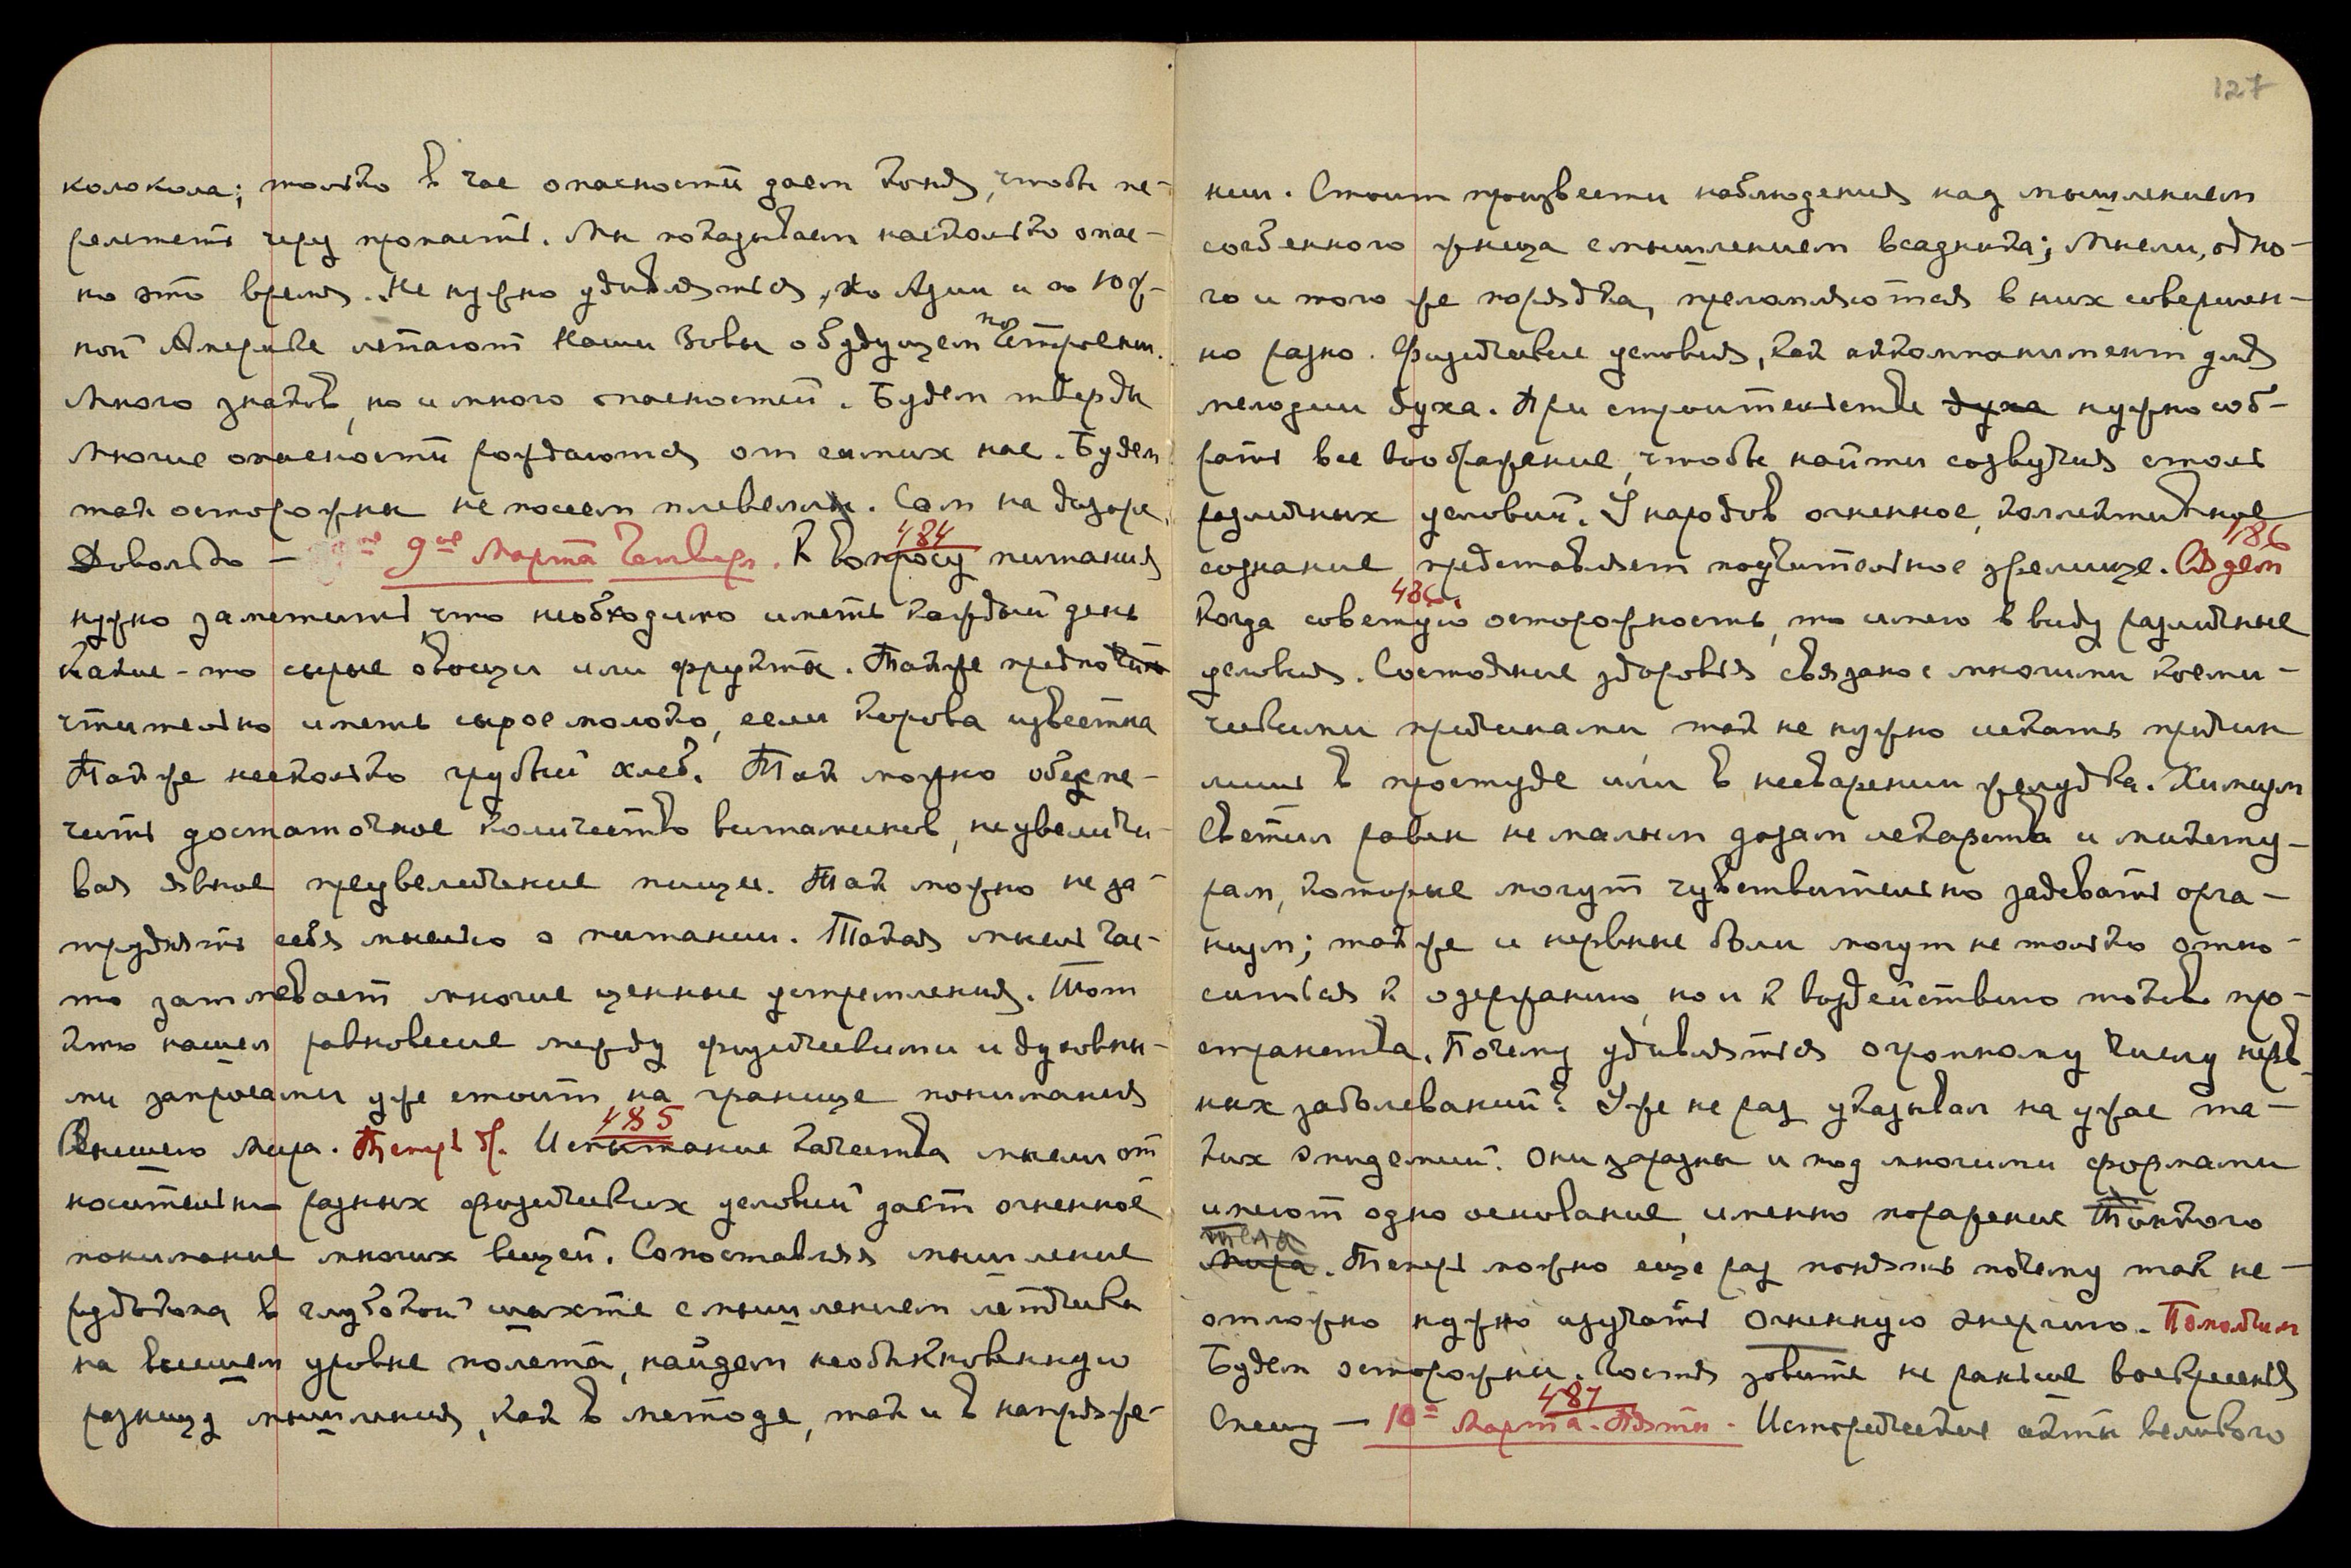 127
колокола; только в час опасности даем коня, чтобы пе-
релететь через пропасть. Мы показываем насколько опас-
но это время. Не нужно удивляться, по Азии и по Юж-
ной Америке летают Наши Зовы о будущем построении.
Много знаков, но и много опасностей. Будем тверды
Многие опасности рождаются от самих нас. Будем
так осторожны не посеем плевелы. Сам на дозоре.
Довольно — 9ое Марта Четверг. 484 К вопросу питания
нужно заметить, что необходимо иметь каждый день
какие-то сырые овощи или фрукты. Также предпо
чтительно иметь сырое молоко, если корова известна
Также несколько грубый хлеб. Так можно обеспе-
чить достаточное количество витаминов, не увеличи-
вая явное преувеличение пищи. Так можно не за-
труднять себя мыслью о питании. Такая мысль час-
то затмевает многие ценные устремления. Тот
кто нашел равновесие между физическими и духовны-
ми запросами уже стоит на границе понимания
Высшего Мира. Теперь др. 485 Испытание качества мысли от
носительно разных физических условий дает огненное
понимание многих вещей. Сопоставляя мышление
рудокопа в глубокой шахте с мышлением летчика
на высшем уровне полета, найдем необыкновенную
разницу мышления, как в методе, так и в напряже-
нии. Стоит произвести наблюдения над мышлением
согбенного жнеца с мышлением всадника; Мысли, одно-
го и того же порядка, преломляются в них совершен-
но разно. Физические условия, как аккомпанимент для
мелодии духа. При строительстве духа нужно соб-
рать все воображение, чтобы найти созвучия столь
различных условий. У народов огненное, коллективное
сознание представляет поучительное зрелище. 486
486.
Когда советую осторожность, то имею в виду различные
условия. Состояние здоровья связано с многими косми-
ческими причинами, так не нужно искать причин
лишь в простуде или в несварении желудка. Химизм
Светил равен не малым дозам лекарства и микстур
рам, которые могут чувствительно задевать орга-
низм; также и нервные боли могут не только отно-
ситься к одержанию, но и к воздействию токов про-
странства. Почему удивляться огромному числу нерв
ных заболеваний? Уже не раз указывал на ужас та-
ких эпидемий. Они заразны и под многими формами
имеют одно основание, именно поражение Тонкого
тела
Мира. Теперь можно еще раз понять почему так не-
отложно нужно изучать Огненную энергию.
Будем осторожны. Гостя зовите не раньше воскресенья
Спешу — 487 10е Марта. Пятн. Исторические акты великого